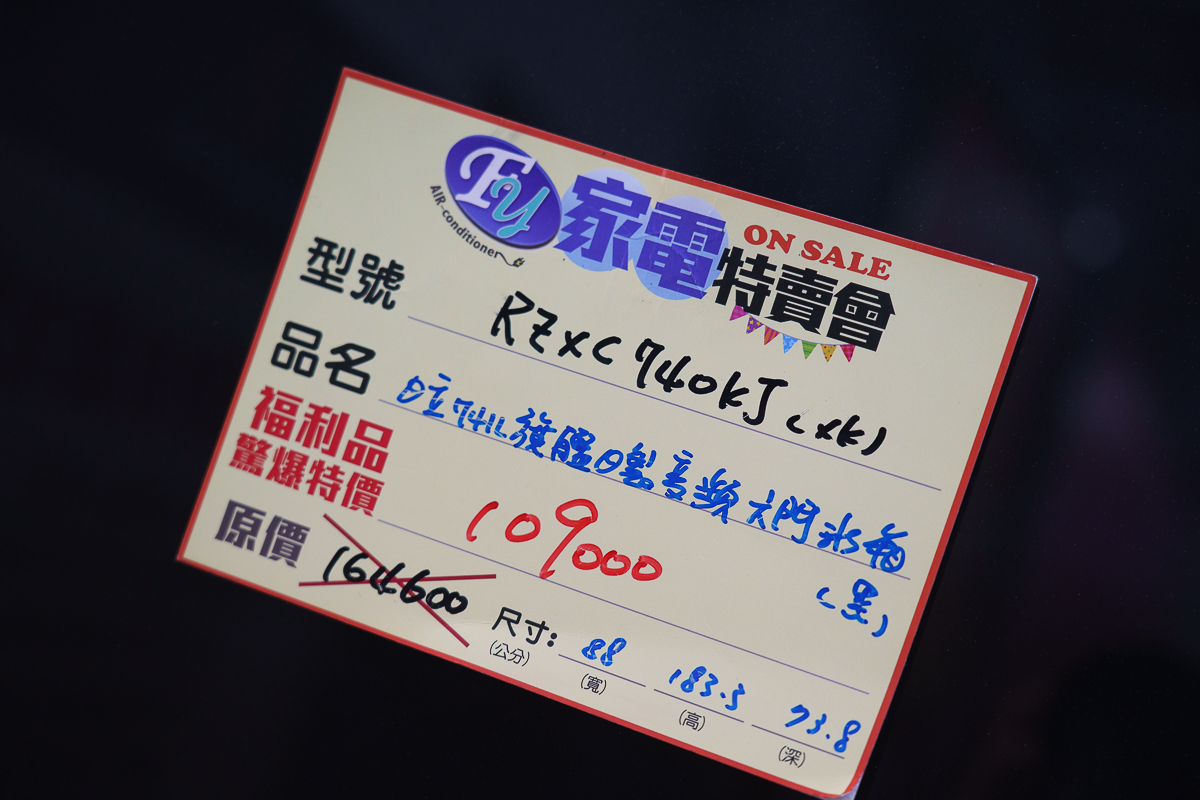 Fy
AIR-conditioner
家電特賣會
ON SALE
型號 RZXC740KJ (XK)
品名 日立741L旗艦日製音頻六門冰箱
(黑)
福利品
驚爆特價 109000
原價 164600
尺寸: 88 183.3 73.8
(公分) (寬) (高) (深)